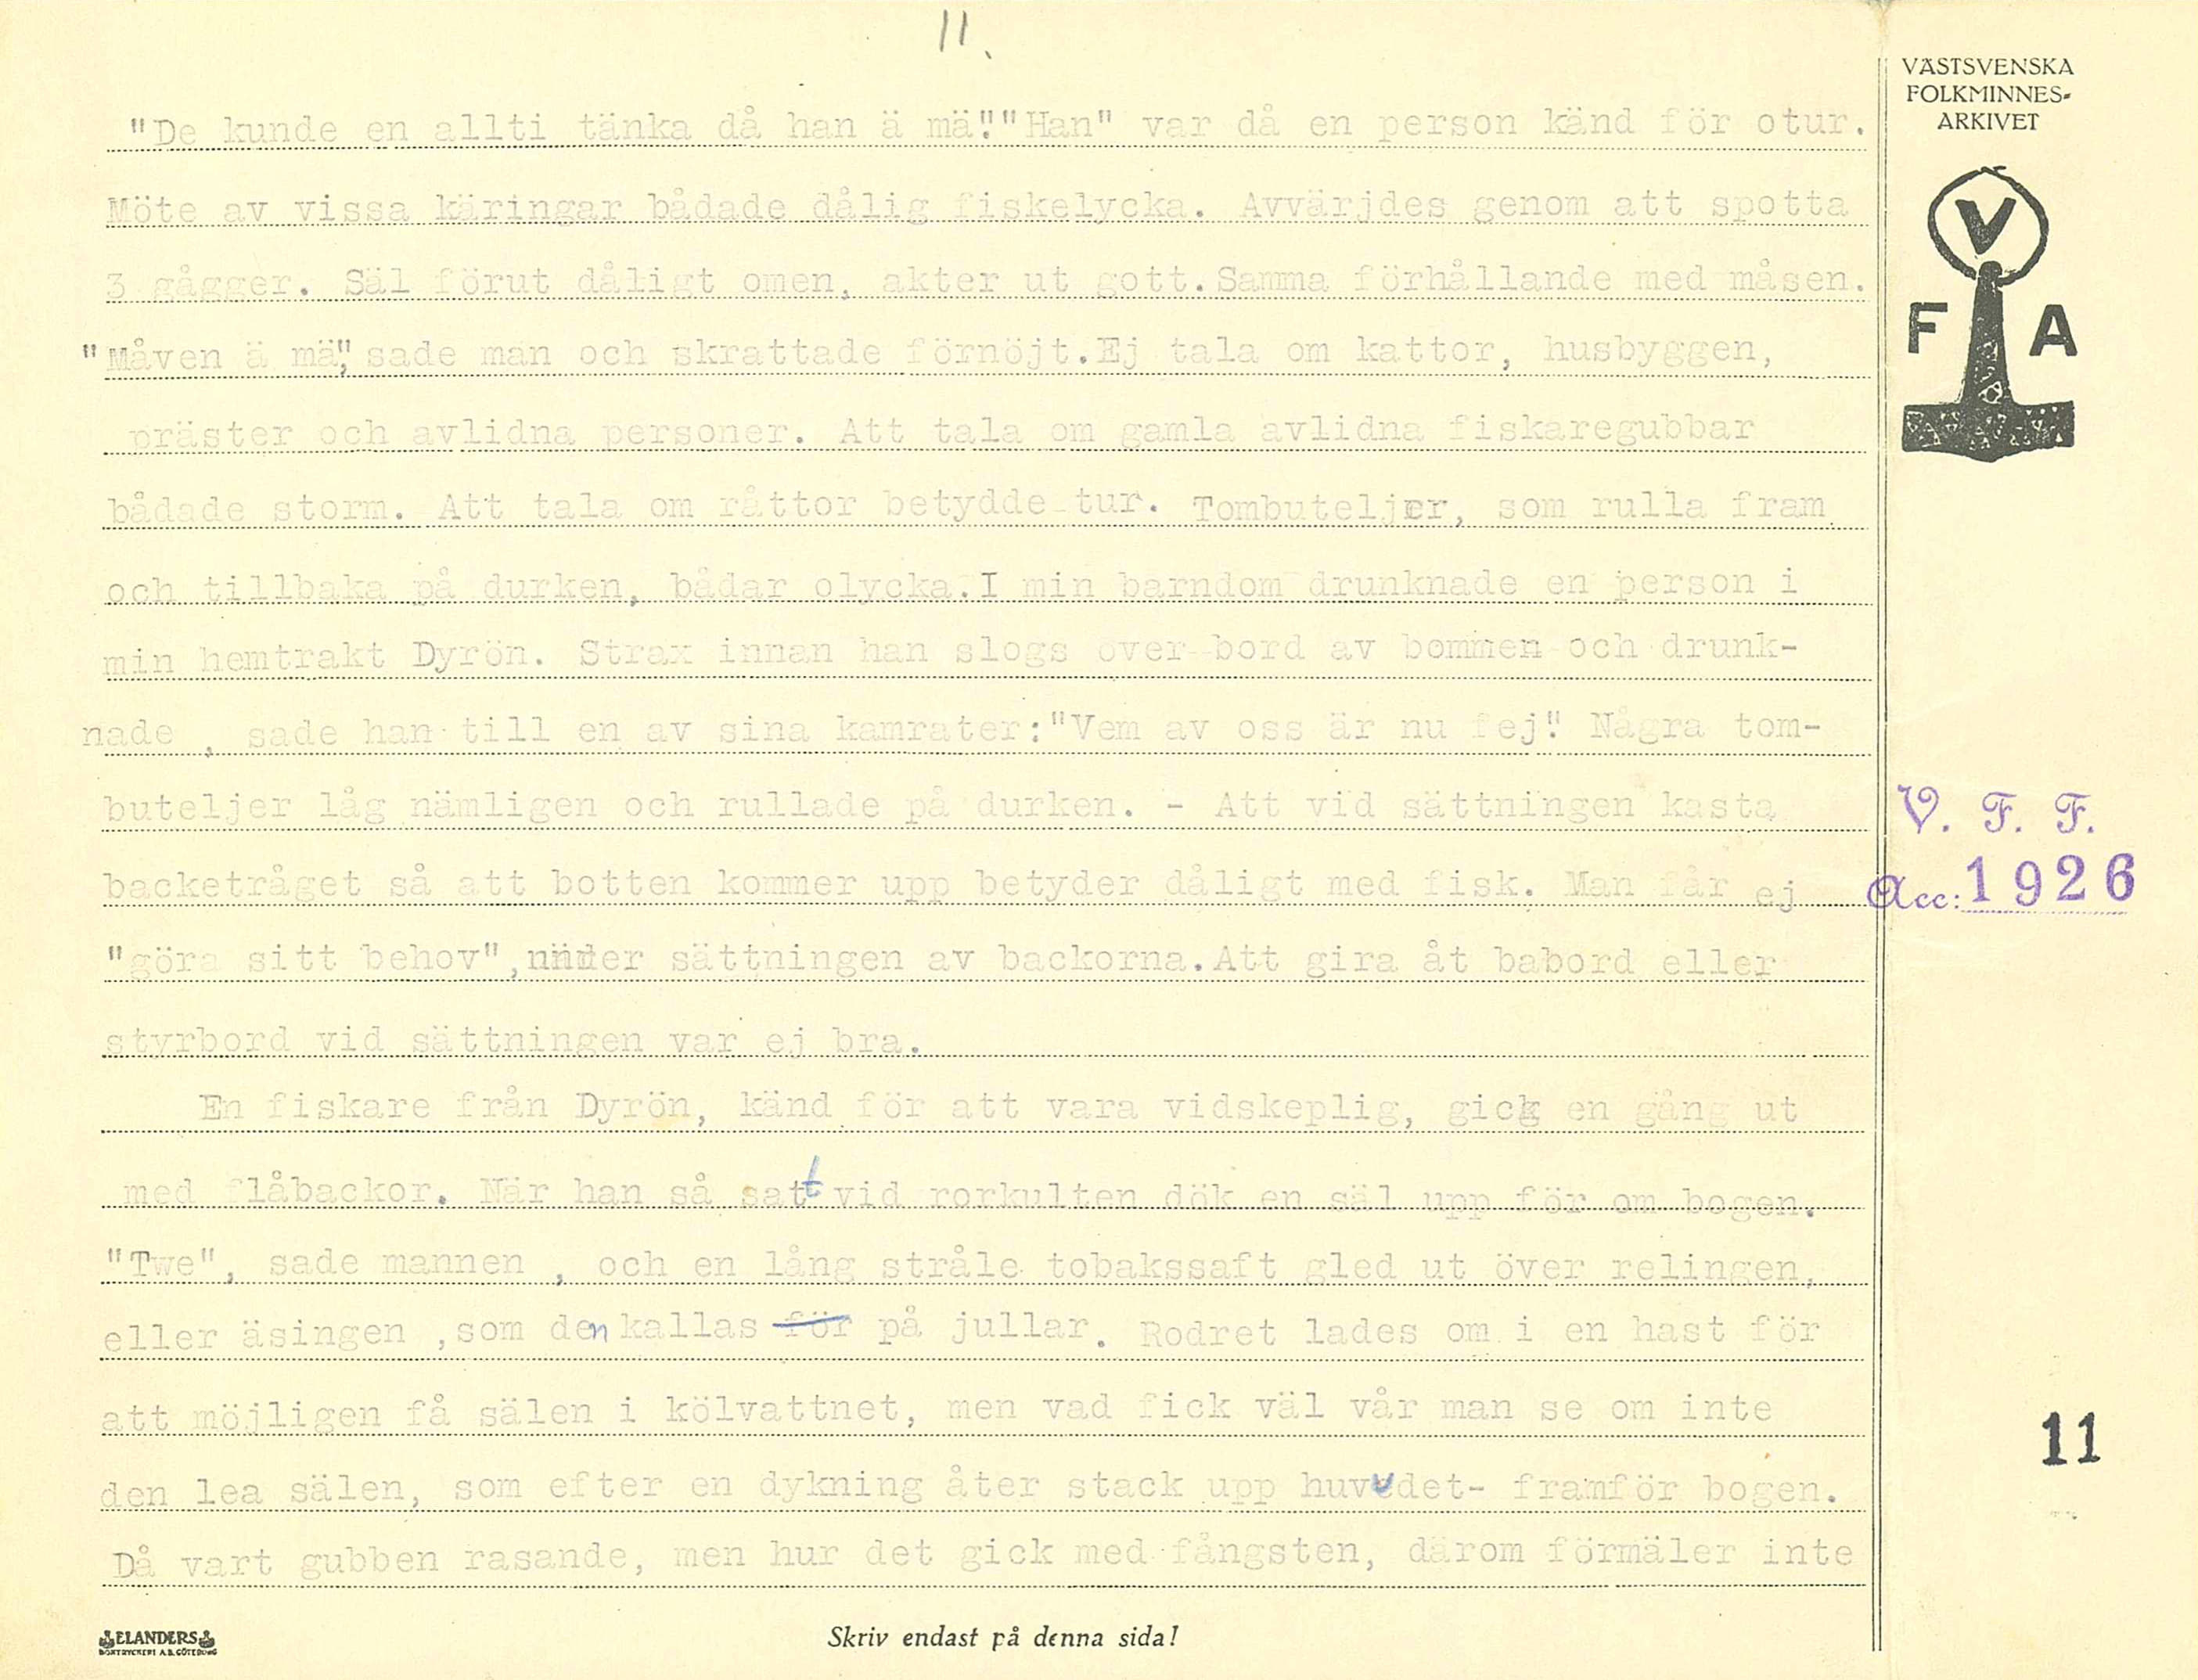 11.
VÄSTSVENSKA
FOLKMINNES-
ARKIVET
V
F A
"De kunde en allti tänka då han ä mä"."Han" var då en person känd för otur.
Möte av vissa käringar bådade dålig fiskelycka. Avvärjdes genom att spotta
3 gågger. Säl förut dåligt omen, akter ut gott. Samma förhållande med måsen.
"Måven ä mä", sade man och skrattade förnöjt. Ej tala om kattor, husbyggen,
präster och avlidna personer. Att tala om gamla avlidna fiskaregubbar
bådade storm. Att tala om råttor betydde tur. Tombuteljer, som rulla fram
och tillbaka på durken, bådar olycka. I min barndom drunknade en person i
min hemtrakt Dyrön. Strax innan han slogs över bord av bommen och drunk-
nade , sade han till en av sina kamrater:"Vem av oss är nu fej". Några tom-
buteljer låg nämligen och rullade på durken. - Att vid sättningen kasta
backetråget så att botten kommer upp betyder dåligt med fisk. Man får ej
"göra sitt behov", under sättningen av backorna. Att gira åt babord eller
styrbord vid sättningen var ej bra.
En fiskare från Dyrön, känd för att vara vidskeplig, gick en gång ut
med flåbackor. När han så satt vid rorkulten dök en säl upp för om bogen.
"Twe", sade mannen , och en lång stråle tobakssaft gled ut över relingen,
eller äsingen ,som den kallas för på jullar. Rodret lades om i en hast för
att möjligen få sälen i kölvattnet, men vad fick väl vår man se om inte
den lea sälen, som efter en dykning åter stack upp huvudet- framför bogen.
Då vart gubben rasande, men hur det gick med fångsten, därom förmäler inte
V. F. F.
Acc: 1926
11
ELANDERS
BOKTRYCKERI A.B. GÖTEBORG
Skriv endast på denna sida!